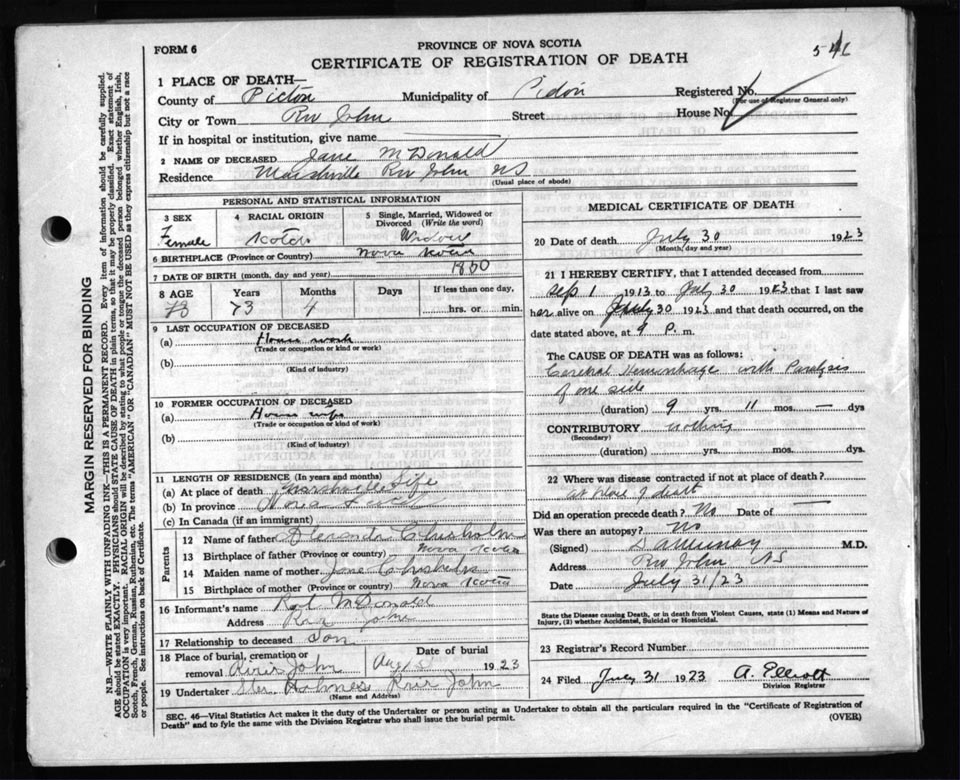 FORM 6
PROVINCE OF NOVA SCOTIA
CERTIFICATE OF REGISTRATION OF DEATH
MARGIN RESERVED FOR BINDING
N.B.—WRITE PLAINLY WITH UNFADING INK—THIS IS A PERMANENT RECORD. Every item of information should be carefully supplied.
AGE should be stated EXACTLY. PHYSICIANS should STATE CAUSE OF DEATH in plain terms, so that it may be properly classified. Exact statement of
OCCUPATION is very important. RACIAL ORIGIN will be described by stating to what people or tongue the deceased person belonged whether English, Irish,
Scotch, French, German, Russian, Ruthenian, etc. The terms "AMERICAN" OR "CANADIAN" MUST NOT BE USED as they express citizenship but not a race
or people. See instructions on back of Certificate.
1 PLACE OF DEATH—
County of Pictou Municipality of Registered No.
(For use of Registrar General only)
City or Town Riv John Street House No.
If in hospital or institution, give name
2 NAME OF DECEASED Jane McDonald
Residence Marshville Riv John NS
(Usual place of abode)
PERSONAL AND STATISTICAL INFORMATION
3 SEX 4 RACIAL ORIGIN 5 Single, Married, Widowed or Divorced (Write the word)
Female Scotch Widow
6 BIRTHPLACE (Province or Country) Nova Scotia
7 DATE OF BIRTH (month, day and year) 1850
8 AGE Years Months Days If less than one day,
73 73 4 hrs. or min.
9 LAST OCCUPATION OF DECEASED
(a) House work
(Trade or occupation or kind or work)
(b)
(Kind of industry)
10 FORMER OCCUPATION OF DECEASED
(a) House wife
(Trade or occupation or kind of work)
(b)
(Kind of industry)
11 LENGTH OF RESIDENCE (In years and months)
(a) At place of death Marshville Life
(b) In province Nova Scotia
(c) In Canada (if an immigrant)
Parents
12 Name of father Chisholm
13 Birthplace of father (Province or country) Nova Scotia
14 Maiden name of mother Jane Chisholm
15 Birthplace of mother (Province or country) Nova Scotia
16 Informant's name Robt McDonald
Address River John
17 Relationship to deceased Son
18 Place of burial, cremation or removal River John Date of burial Aug 1923
19 Undertaker Holmes River John
(Name and Address)
MEDICAL CERTIFICATE OF DEATH
20 Date of death July 30 1923
(Month, day and year)
21 I HEREBY CERTIFY, that I attended deceased from
Sep 1 1913 to July 30 1923 that I last saw
her alive on July 30 1923 and that death occurred, on the
date stated above, at 9 P. m.
The CAUSE OF DEATH was as follows:
Cerebral Hemorrhage with Paralysis
of one side
(duration) 9 yrs. 11 mos. — dys
CONTRIBUTORY nothing
(Secondary)
(duration) yrs. mos. dys.
22 Where was disease contracted if not at place of death?
at place of death
Did an operation precede death? No Date of —
Was there an autopsy? No
(Signed) M.D.
Address Riv John NS
Date July 31/23
State the Disease causing Death, or in death from Violent Causes, state (1) Means and Nature of
Injury, (2) whether Accidental, Suicidal or Homicidal.
23 Registrar's Record Number
24 Filed July 31 1923 A. Elliott
Division Registrar
SEC. 46—Vital Statistics Act makes it the duty of the Undertaker or person acting as Undertaker to obtain all the particulars required in the "Certificate of Registration of
Death" and to fyle the same with the Division Registrar who shall issue the burial permit.
(OVER)